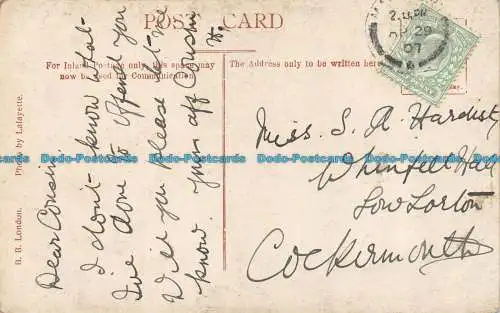 POST CARD
For Inland Postage only this space may
now be used for Communication.
The Address only to be written here.
B. B. London. Photo by Lafayette.
Dear Cousin
I don't know what
I've done to offend you
Will you please let me
know. yours aff Cousin
Miss. S. A. Hardisty
Whinfell Hall
Low Lorton
Cockermouth
29
07
Dodo-Postcards Dodo-Postcards Dodo-Postcards Dodo-Postcards Dodo-Postcards